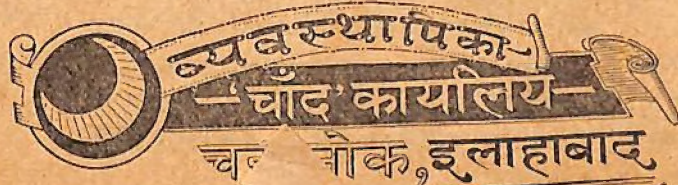 व्यवस्थापिका
—'चाँद' कार्यालय—
इलाहाबाद